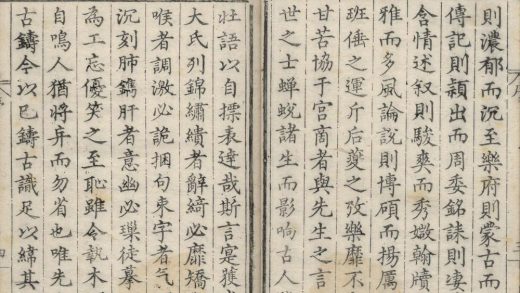 則濃郁而沉至樂府則蒙古而
傳記則穎出而周委銘誄則悽
含情述叙則駿爽而秀媺翰牘
雅而多風論說則博碩而揚厲
班倕之運斤后夔之攷樂靡不
甘苦協于宮商者與先生之言
世之士蟬蛻諸生而影响古人
壯語以自摽表達哉斯言寔獲
大氐列錦繡繢者辭綺必靡矯
喉者調激必詭捆句束字者气
沉刻肺鐫肝者意幽必璅徒摹
為工忘優笑之至恥雖令執木
自鳴人猶將弃而勿省也唯先
古鑄今以巳鑄古識足以緯其